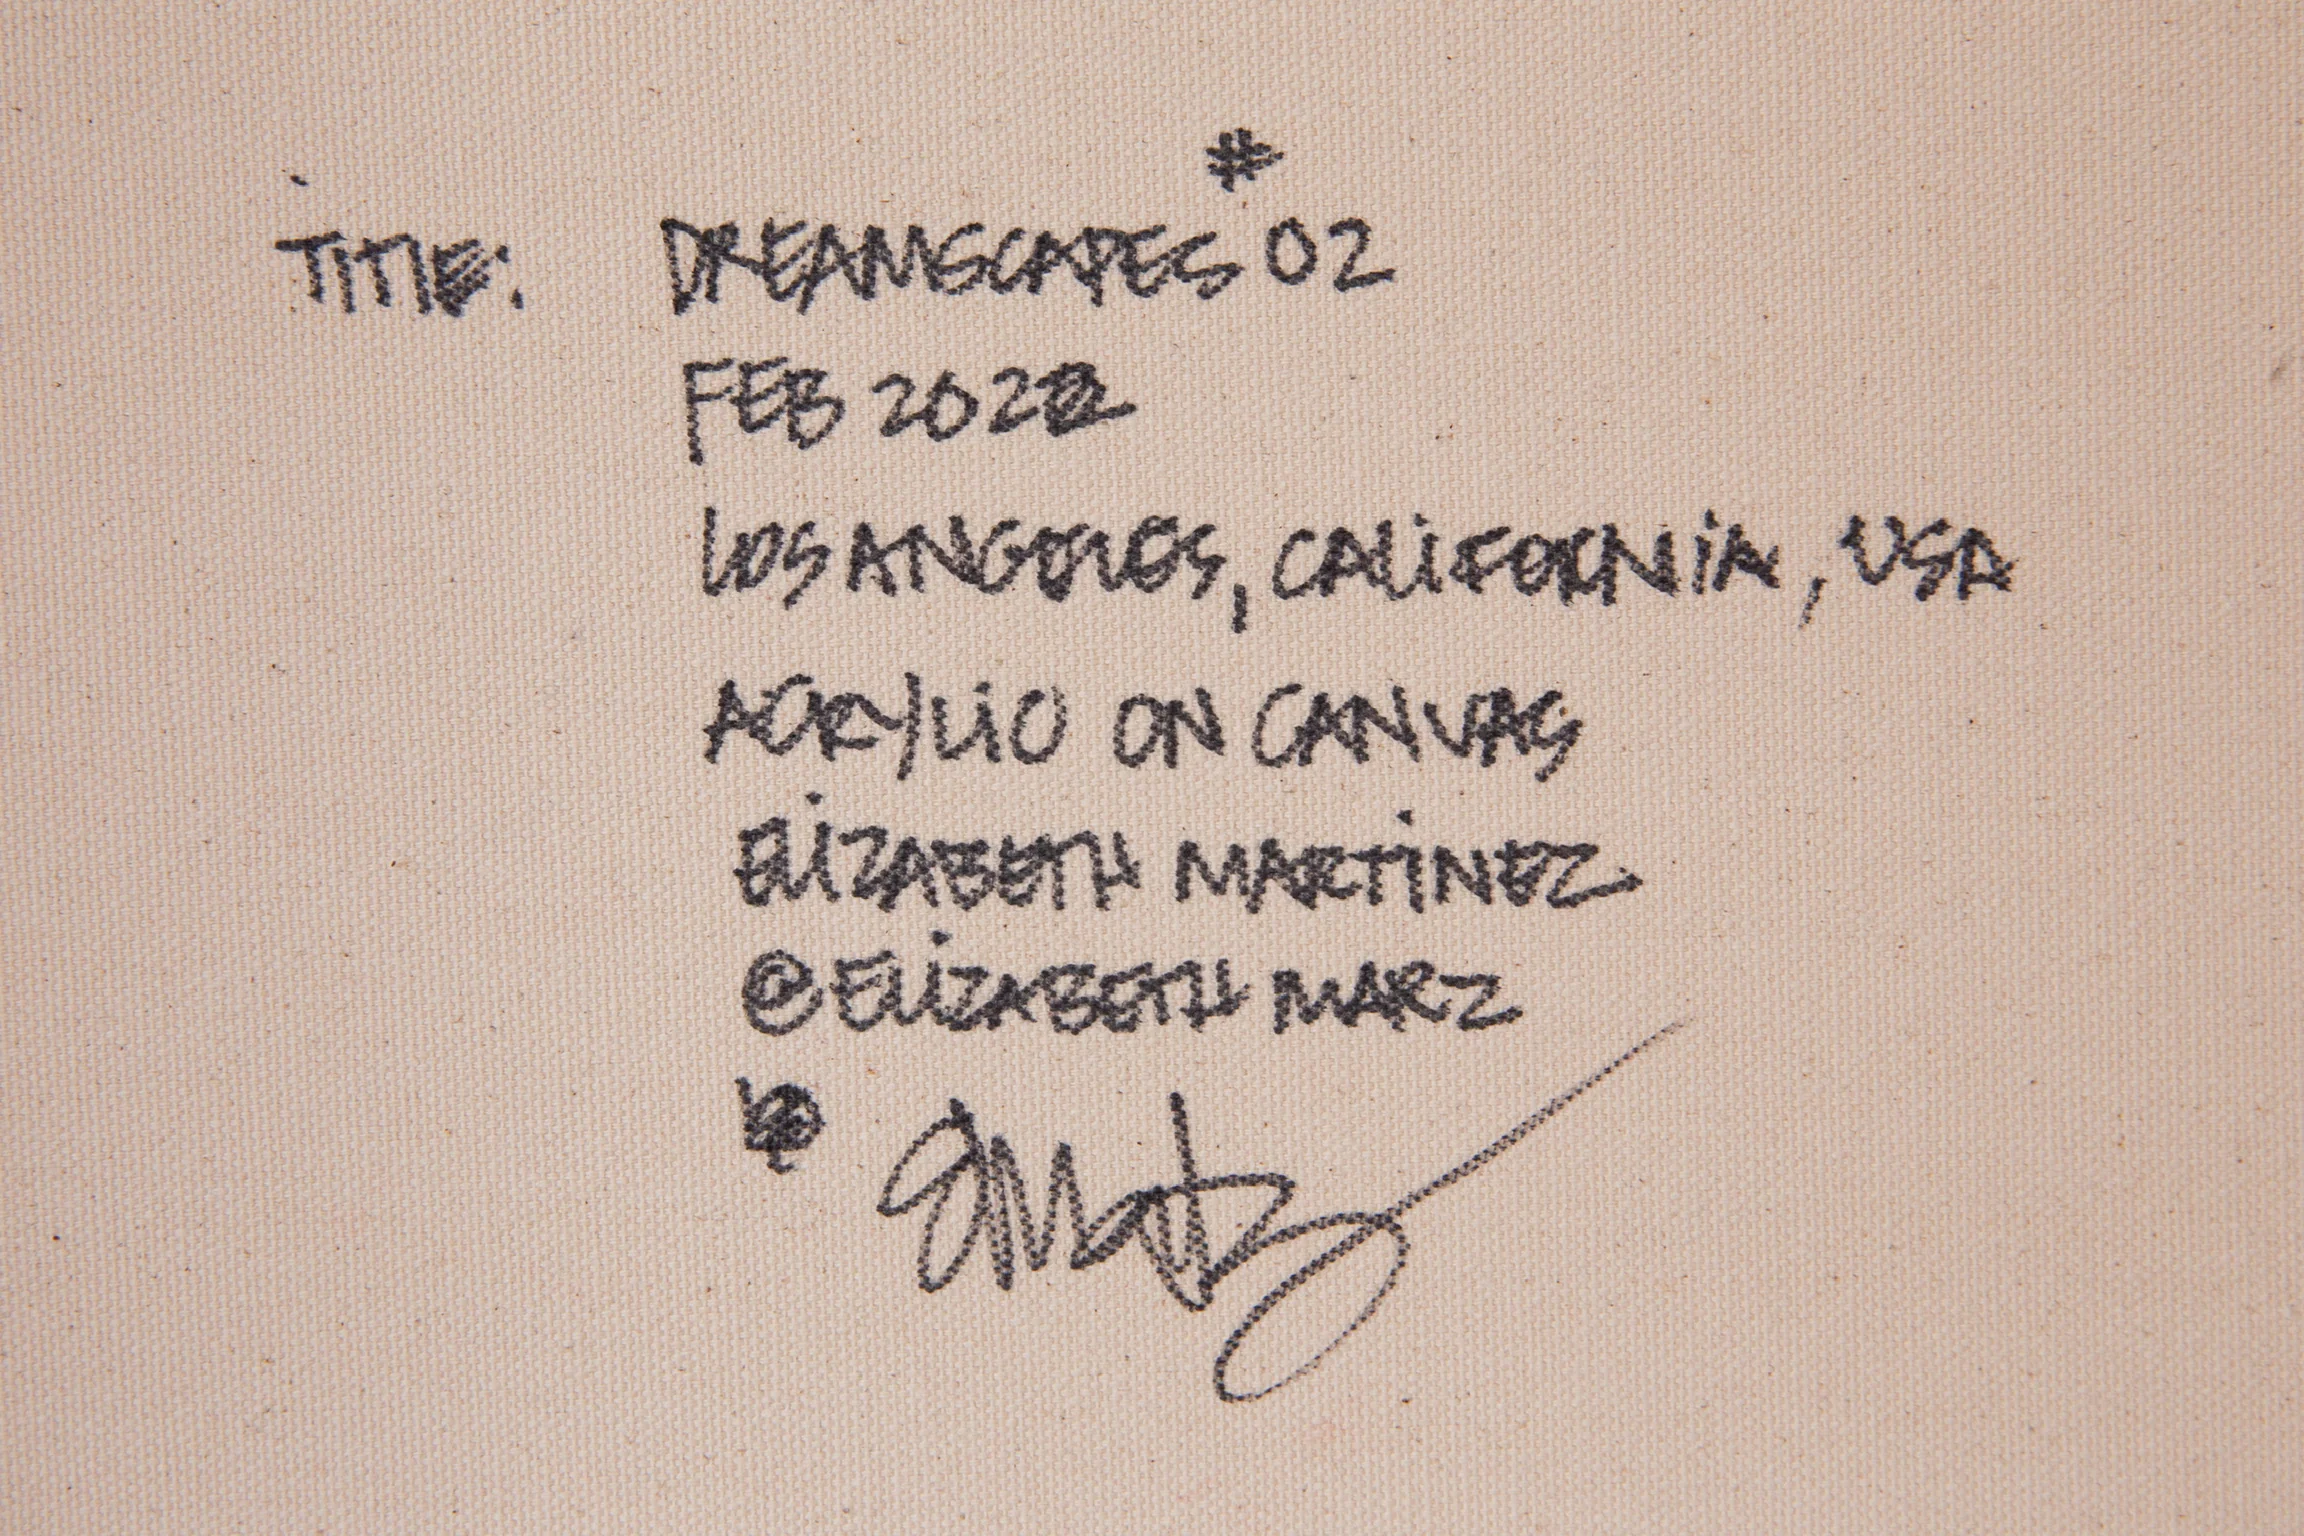 TITLE: DREAMSCAPES #02
FEB 2022
LOS ANGELES, CALIFORNIA, USA
ACRYLIC ON CANVAS
ELIZABETH MARTINEZ
@ELIZABETH MARZ